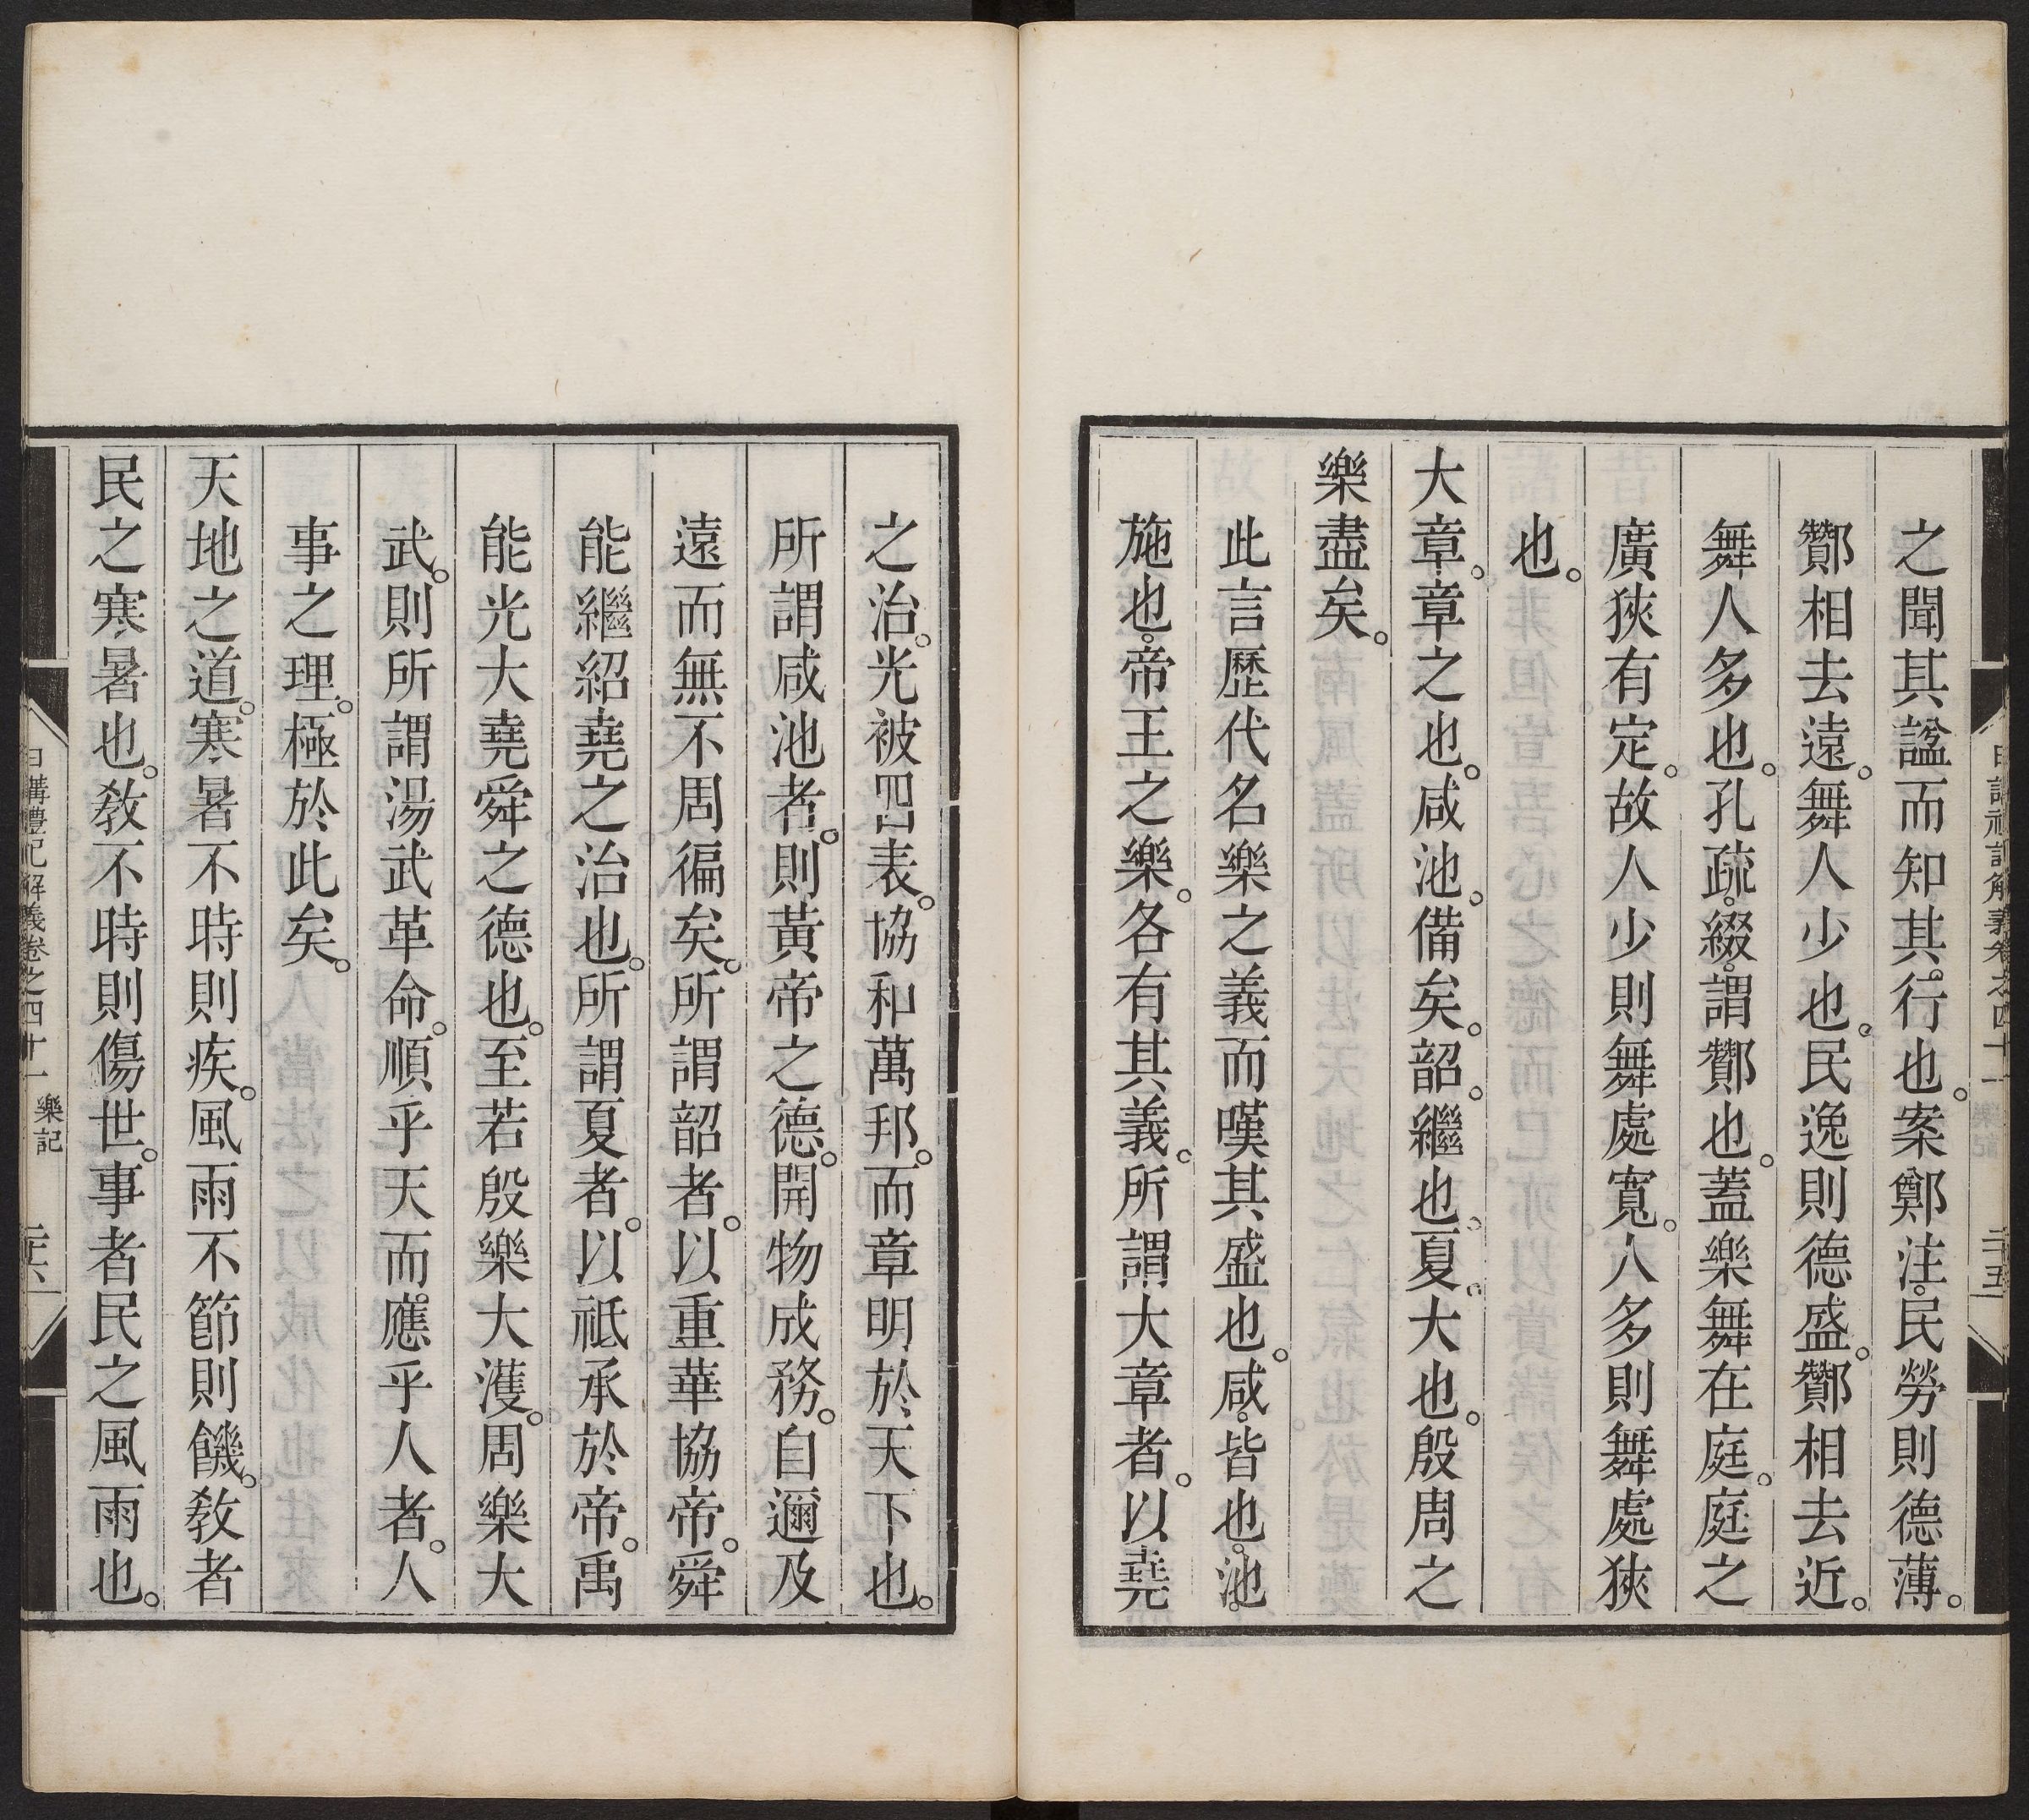 日講禮記解義卷之四十一 樂記 二十五
之聞其諡而知其行也。案鄭注民勞則德薄。
酇相去遠。舞人少也。民逸則德盛。酇相去近。
舞人多也。孔疏。綴。謂酇也。蓋樂舞在庭。庭之
廣狹有定。故人少則舞處寬。人多則舞處狹
也。
大章。章之也。咸池。備矣。韶。繼也。夏。大也。殷周之
樂盡矣。
此言歷代名樂之義而嘆其盛也。咸。皆也。池。
施也。帝王之樂。各有其義。所謂大章者。以堯
之治。光被四表。協和萬邦。而章明於天下也。
所謂咸池者。則黃帝之德。開物成務。自邇及
遠而無不周徧矣。所謂韶者。以重華協帝。舜
能繼紹堯之治也。所謂夏者。以祗承於帝。禹
能光大堯舜之德也。至若殷樂大濩。周樂大
武。則所謂湯武革命。順乎天而應乎人者。人
事之理。極於此矣。
天地之道。寒暑不時則疾。風雨不節則饑。敎者
民之寒暑也。敎不時則傷世。事者民之風雨也。
日講禮記解義卷之四十一 樂記 二十六